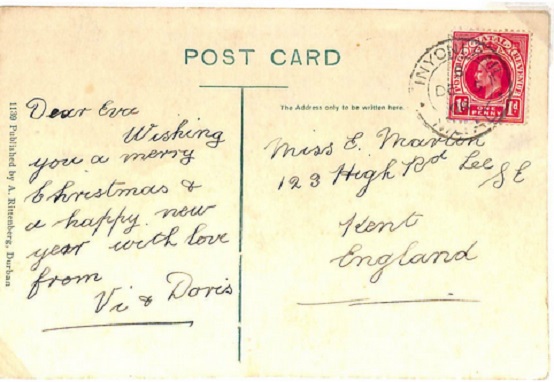 POST CARD
The Address only to be written here.
1139 Published by A. Rittenberg, Durban
Dear Eva
Wishing
you a merry
Christmas &
a happy new
year with love
from
Vi & Doris
Miss E. Marton
123 High Rd Lee SE
Kent
England
NATAL
POSTAGE REVENUE
1d ONE PENNY 1d